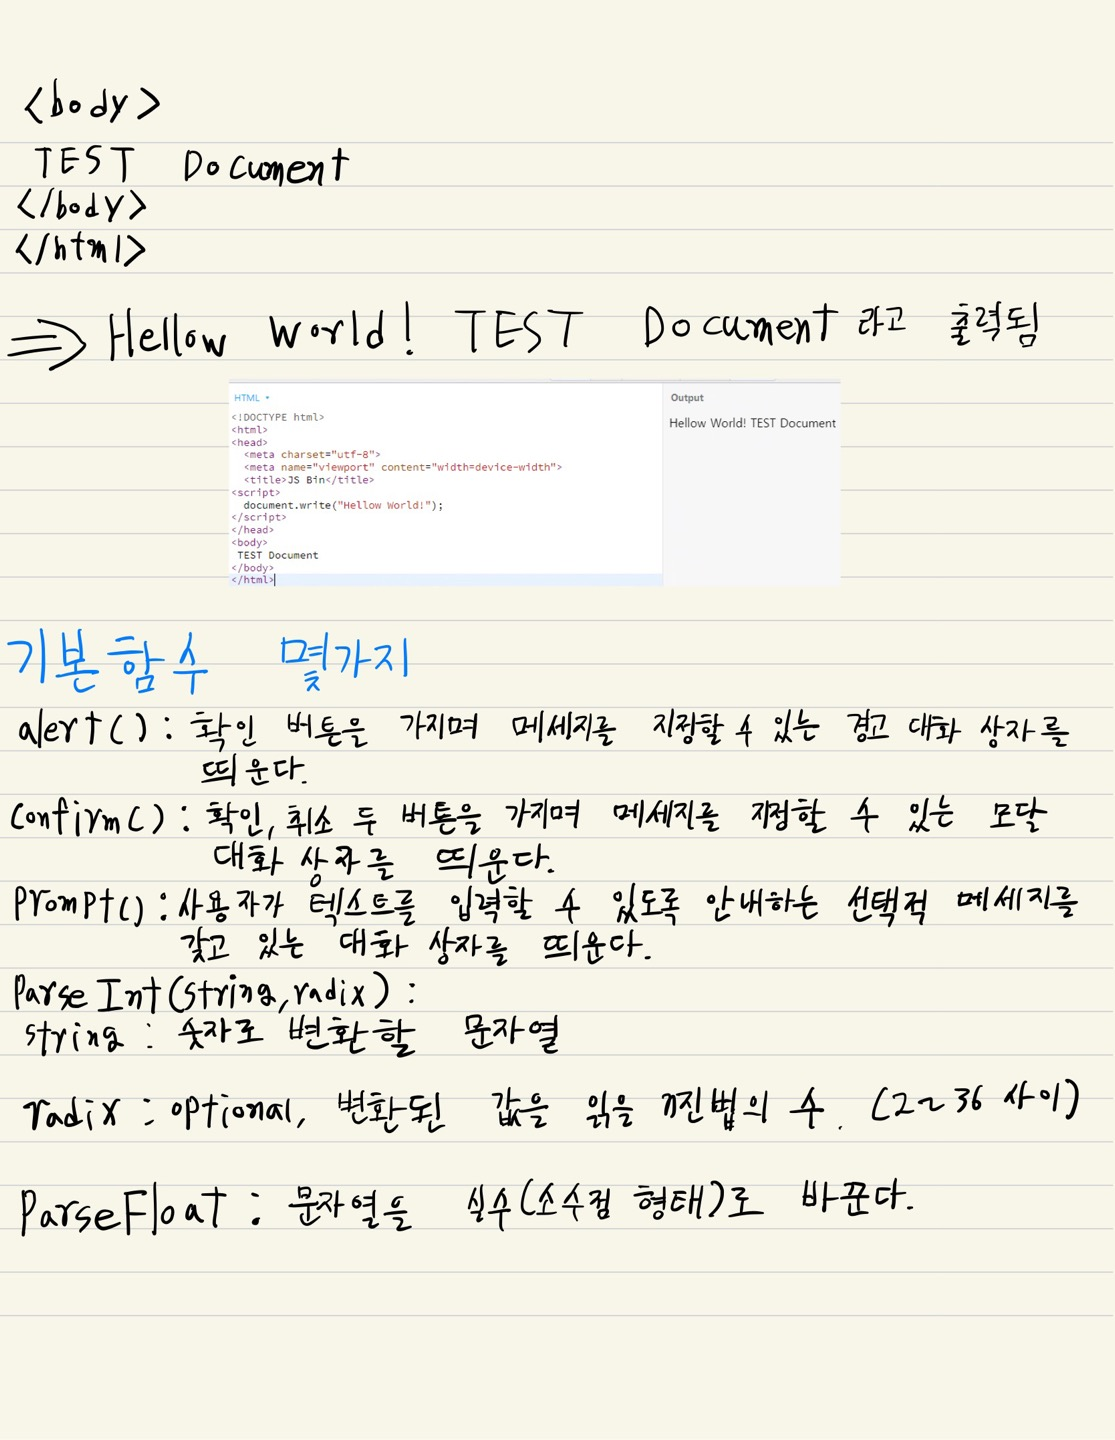 <body>
TEST Document
</body>
</html>
⇒ Hellow World! TEST Document 라고 출력됨
HTML
<!DOCTYPE html>
<html>
<head>
<meta charset="utf-8">
<meta name="viewport" content="width=device-width">
<title>JS Bin</title>
<script>
document.write("Hellow World!");
</script>
</head>
<body>
TEST Document
</body>
</html>
Output
Hellow World! TEST Document
기본함수 몇가지
alert() : 확인 버튼을 가지며 메세지를 지정할 수 있는 경고 대화 상자를
띄운다.
Confirm() : 확인, 취소 두 버튼을 가지며 메세지를 지정할 수 있는 모달
대화 상자를 띄운다.
Prompt() : 사용자가 텍스트를 입력할 수 있도록 안내하는 선택적 메세지를
갖고 있는 대화 상자를 띄운다.
Parse Int(string, radix) :
string : 숫자로 변환할 문자열
radix : optional, 변환된 값을 읽을 n진법의 수. (2~36 사이)
ParseFloat : 문자열을 실수(소수점 형태)로 바꾼다.